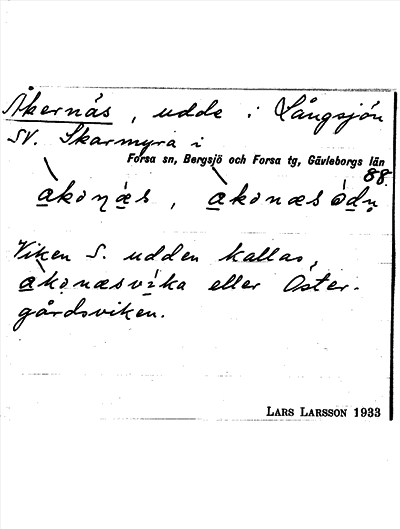 Åkernäs, udde i Långsjön
SV. Skarmyra i
Forsa sn, Bergsjö och Forsa tg, Gävleborgs län
88.
Viken S. udden kallas
eller Öster-
gårdsviken.
LARS LARSSON 1933